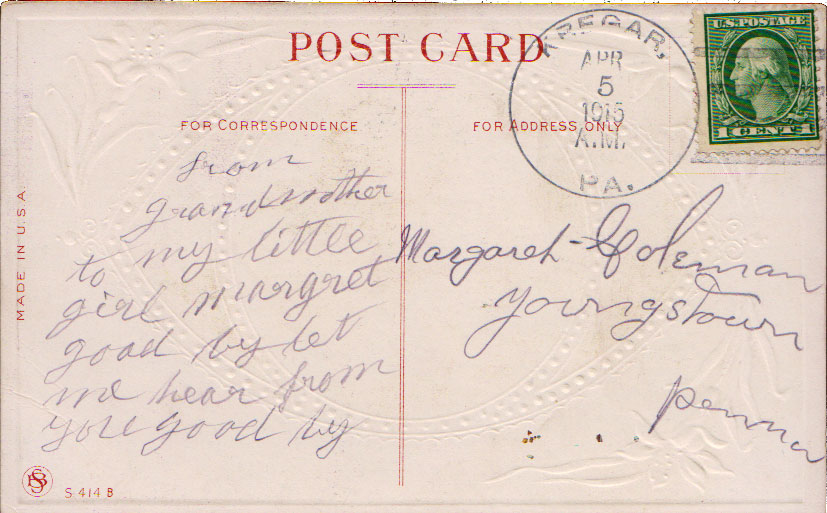 POST CARD
KREGAR,
APR
5
1915
A.M.
PA.
U.S. POSTAGE
1 CENT 1
FOR CORRESPONDENCE
FOR ADDRESS ONLY
from
grandmother
to my little
girl margret
good by let
me hear from
you good by
Margaret Coleman
Youngstown
penna
MADE IN U.S.A.
S 414 B